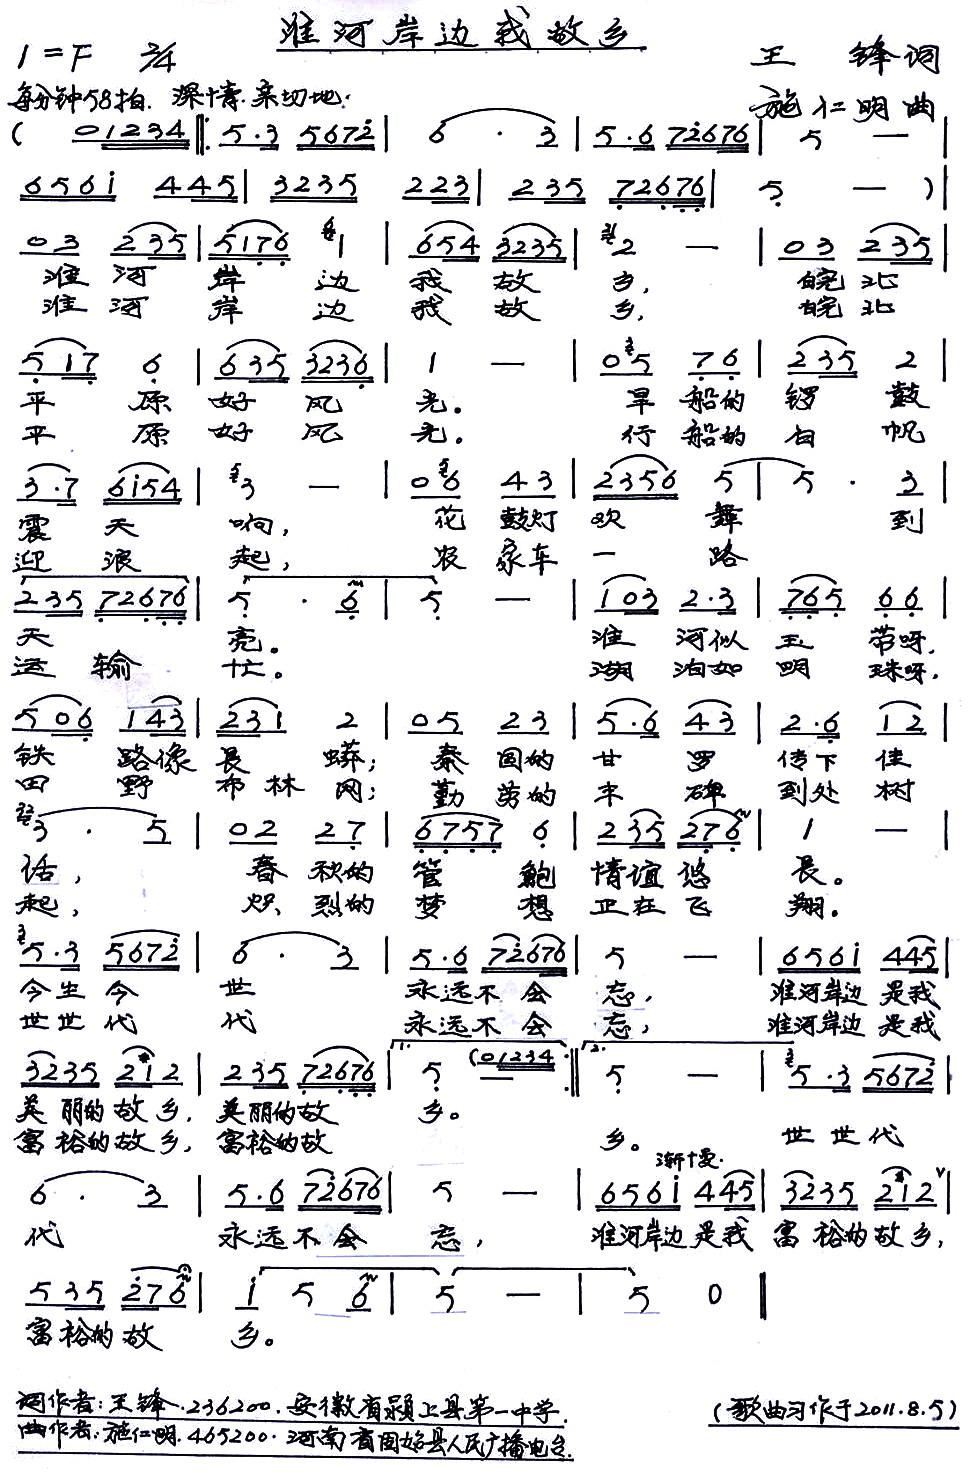 淮河岸边我故乡
1=F 2/4
王 锋词
每分钟58拍. 深情.亲切地.
施仁明曲
( 01234 ‖: 5·3 5672 | 6 · 3 | 5·6 72676 | 5 — |
6561 445 | 3235 223 | 235 72676 | 5 — ) |
03 235 | 5176 1 | 654 3235 | 2 — | 03 235 |
淮河 岸 边 我 故 乡, 皖北
淮河 岸 边 我 故 乡, 皖北
517 6 | 635 3236 | 1 — | 05 76 | 235 2 |
平 原 好 风 光。 旱船的 锣 鼓
平 原 好 风 光。 行船的 白 帆
3·7 6154 | 3 — | 06 43 | 2356 5 | 5 · 3 |
震 天 响, 花鼓灯 欢 舞 到
迎 浪 起, 农家车 一 路
235 72676 | 5 · 6 | 5 — | 103 2·3 | 765 66 |
天 亮。 淮 河似 玉 带呀,
运 输 忙。 湖 泊如 明 珠呀,
506 143 | 231 2 | 05 23 | 5·6 43 | 2·6 12 |
铁 路像 长 蟒; 秦国的 甘 罗 传下 佳
田 野 布林 网; 勤劳的 丰 碑 到处 树
3 · 5 | 02 27 | 6757 6 | 235 276 | 1 — |
话, 春秋的 管 鲍 情谊悠 长。
起, 炽烈的 梦 想 正在飞 翔。
5·3 5672 | 6 · 3 | 5·6 72676 | 5 — | 6561 445 |
今生今 世 永远不会 忘, 淮河岸边 是我
世世代 代 永远不会 忘, 淮河岸边 是我
3235 212 | 235 72676 | 1. 5 — (01234 :‖ 2. 5 — | 5·3 5672 |
美丽的故乡, 美丽的故 乡。
富裕的故乡, 富裕的故 乡。 世世代
渐慢.
6 · 3 | 5·6 72676 | 5 — | 6561 445 | 3235 212 |
代 永远不会 忘, 淮河岸边是我 富裕的故乡,
535 276 | 1 5 6 | 5 — | 5 0 ‖
富裕的故 乡。
词作者:王锋.236200.安徽省颍上县第一中学.
(歌曲习作于2011.8.5)
曲作者:施仁明.465200.河南省固始县人民广播电台.